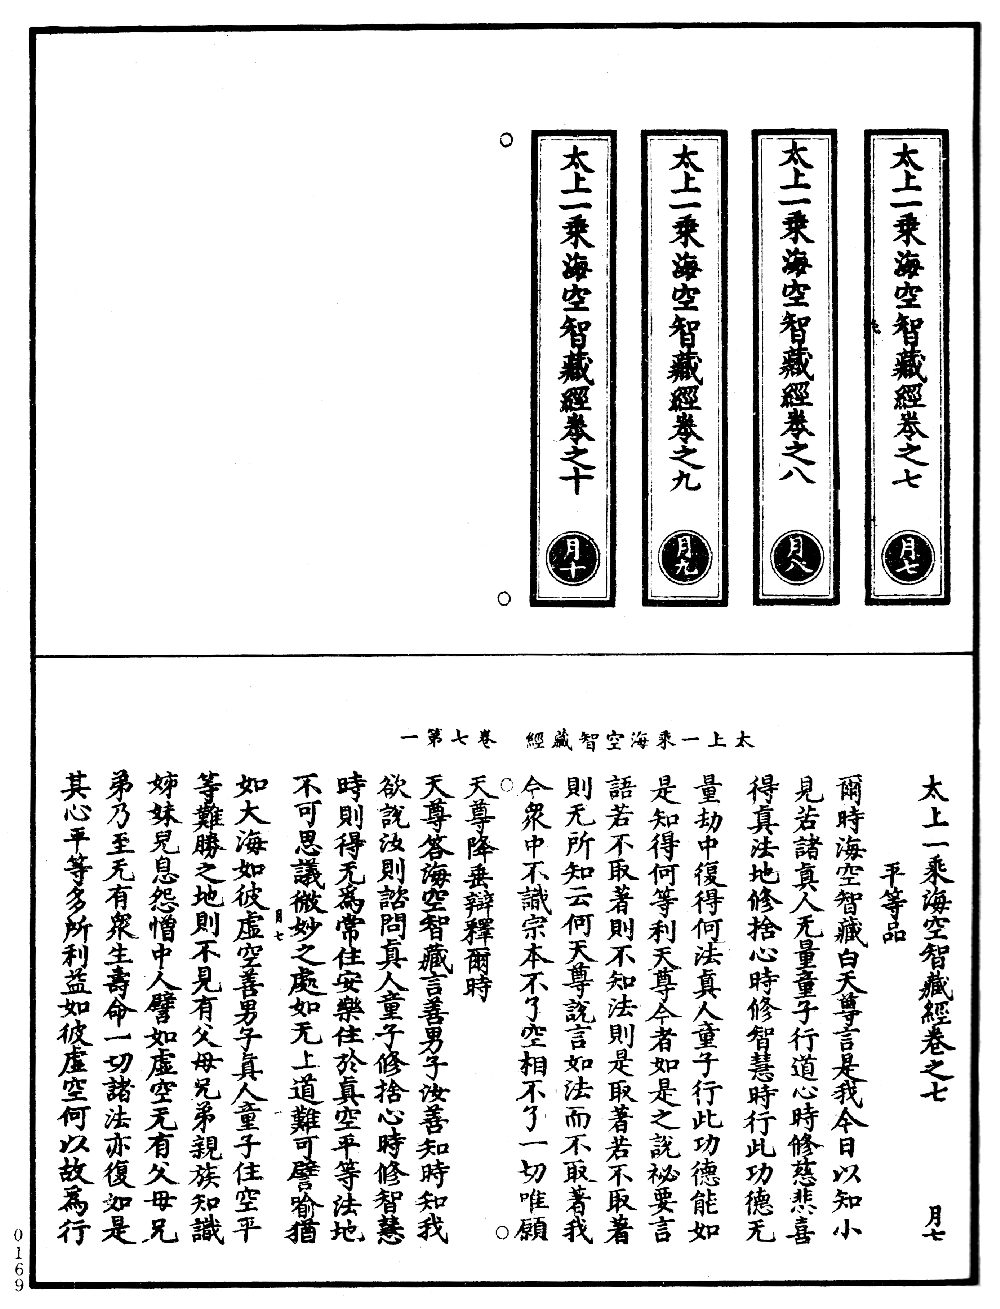 太上一乘海空智藏經卷之七
月七
太上一乘海空智藏經卷之八
月八
太上一乘海空智藏經卷之九
月九
太上一乘海空智藏經卷之十
月十
太上一乘海空智藏經　卷七第一
太上一乘海空智藏經卷之七　月七
平等品
爾時海空智藏白天尊言是我今日以知小
見若諸真人无量童子行道心時修慈悲喜
得真法地修捨心時修智慧時行此功德无
量劫中復得何法真人童子行此功德能如
是知得何等利天尊今者如是之說祕要言
語若不取著則不知法則是取著若不取著
則无所知云何天尊說言如法而不取著我
今衆中不識宗本不了空相不了一切唯願
天尊降垂辯釋爾時
天尊答海空智藏言善男子汝善知時知我
欲說汝則諮問真人童子修捨心時修智慧
時則得无爲常住安樂住於真空平等法地
不可思議微妙之處如无上道難可譬喻猶
月七
如大海如彼虛空善男子真人童子住空平
等難勝之地則不見有父母兄弟親族知識
姊妹兒息怨憎中人譬如虛空无有父母兄
弟乃至无有衆生壽命一切諸法亦復如是
其心平等多所利益如彼虛空何以故爲行
0169